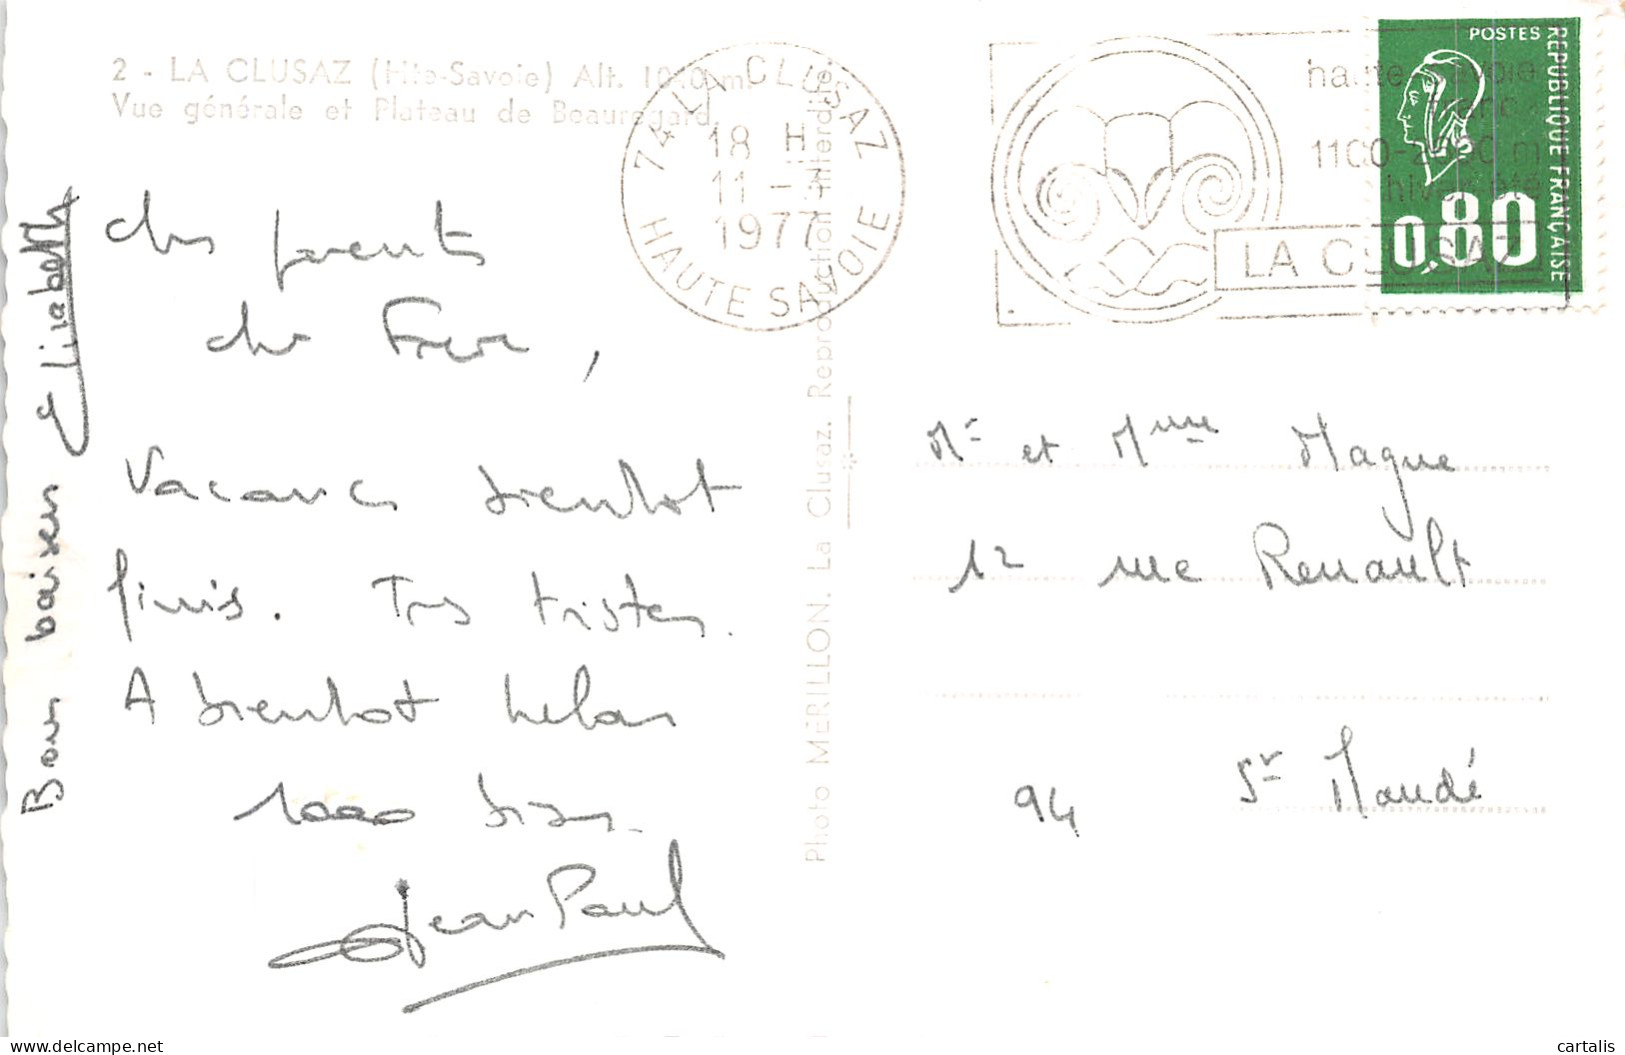 2 - LA CLUSAZ (Hte-Savoie) Alt. 1040 m.
Vue générale et Plateau de Beauregard.
chers parents
cher Frère,
Vacances bientot
finis. Tres tristes.
A bientot helas
1000 bises.
Jean Paul
Bons baisers Elisabeth
Photo MERILLON. La Clusaz. Reproduction interdite.
74 LA CLUSAZ
18 H
11 -
1977
HAUTE SAVOIE
haute savoie
1100-2600 m
hiver été
LA CLUSAZ
POSTES
REPUBLIQUE FRANÇAISE
0,80
Mr et Mme Magne
12 rue Renault
94 St Mandé
delcampe.com
cartalis